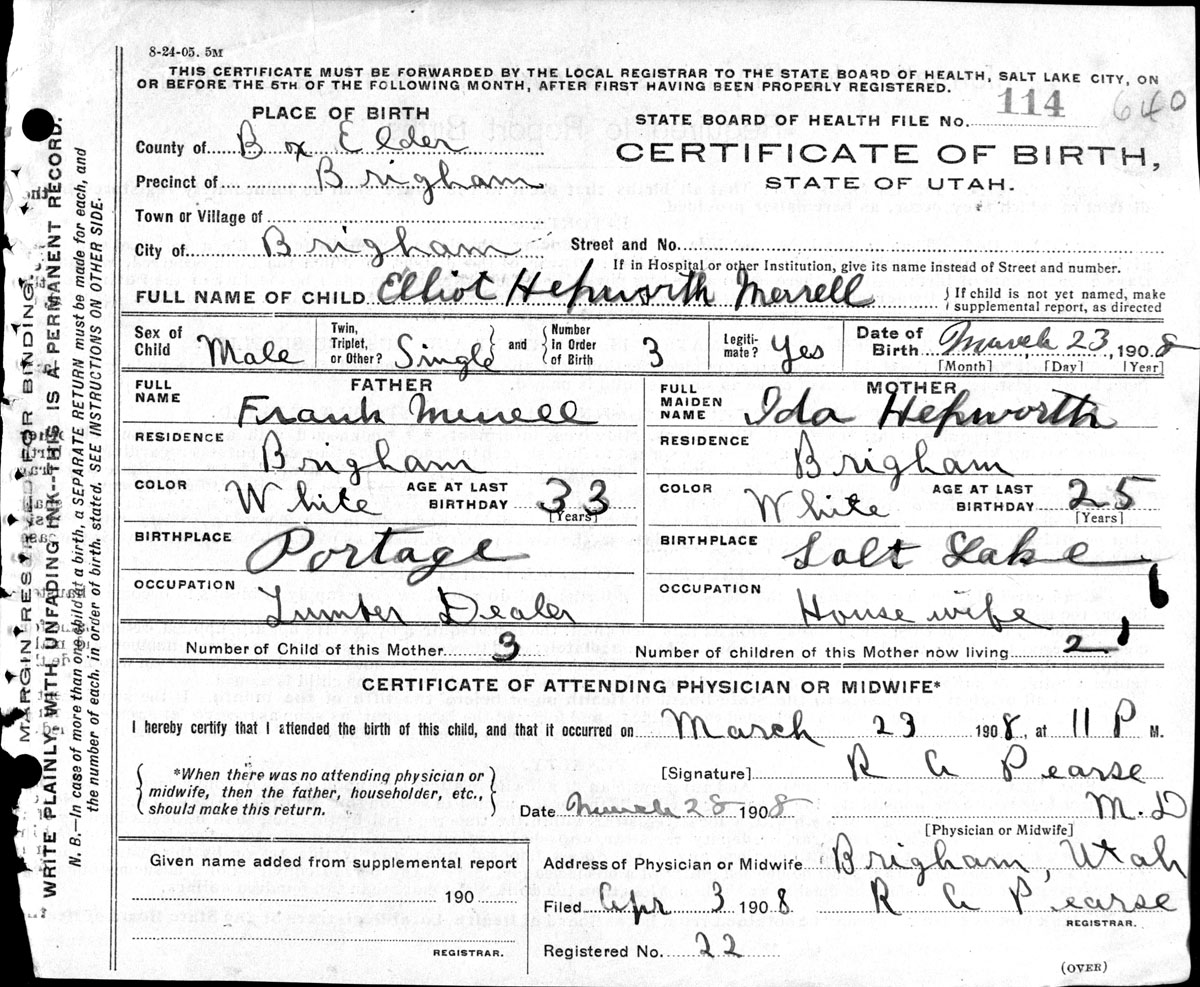 8-24-05. 5M
THIS CERTIFICATE MUST BE FORWARDED BY THE LOCAL REGISTRAR TO THE STATE BOARD OF HEALTH, SALT LAKE CITY, ON
OR BEFORE THE 5TH OF THE FOLLOWING MONTH, AFTER FIRST HAVING BEEN PROPERLY REGISTERED.
PLACE OF BIRTH
STATE BOARD OF HEALTH FILE No. 114 640
County of Box Elder
CERTIFICATE OF BIRTH,
Precinct of Brigham
STATE OF UTAH.
Town or Village of
City of Brigham Street and No.
If in Hospital or other Institution, give its name instead of Street and number.
FULL NAME OF CHILD Elliot Hepworth Merrell } If child is not yet named, make
supplemental report, as directed
Sex of Child Male Twin, Triplet, or Other? Single and Number in Order of Birth 3 Legiti-mate? Yes Date of Birth March 23, 1908
[Month] [Day] [Year]
FATHER
FULL NAME Frank Merrell
RESIDENCE Brigham
COLOR White AGE AT LAST BIRTHDAY 33
[Years]
BIRTHPLACE Portage
OCCUPATION Lumber Dealer
MOTHER
FULL MAIDEN NAME Ida Hepworth
RESIDENCE Brigham
COLOR White AGE AT LAST BIRTHDAY 25
[Years]
BIRTHPLACE Salt Lake
OCCUPATION House wife
Number of Child of this Mother 3 Number of children of this Mother now living 2
CERTIFICATE OF ATTENDING PHYSICIAN OR MIDWIFE*
I hereby certify that I attended the birth of this child, and that it occurred on March 23 1908, at 11 P M.
*When there was no attending physician or
midwife, then the father, householder, etc.,
should make this return.
[Signature] R A Pearse
Date March 28 1908 M.D
[Physician or Midwife]
Given name added from supplemental report
190
REGISTRAR.
Address of Physician or Midwife Brigham, Utah
Filed Apr 3 1908 R A Pearse
REGISTRAR.
Registered No. 22
(OVER)
MARGIN RESERVED FOR BINDING.
"WRITE PLAINLY WITH UNFADING INK--THIS IS A PERMANENT RECORD.
N. B.—In case of more than one child at a birth, a SEPARATE RETURN must be made for each, and
the number of each, in order of birth, stated. SEE INSTRUCTIONS ON OTHER SIDE.